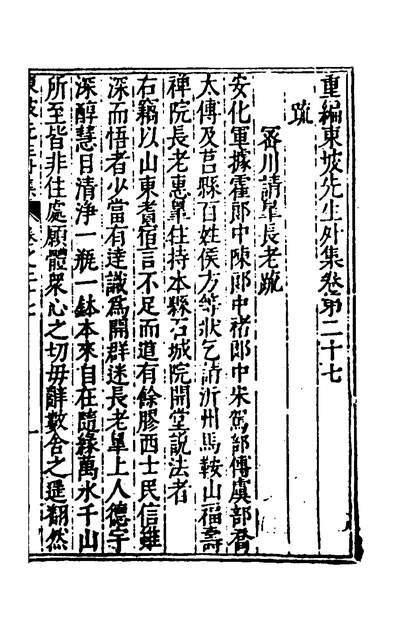 重編東坡先生外集卷第二十七
疏
密川請臯長老疏
安化軍據霍郎中陳郎中褚郎中宋駕部傅虞部喬
太傅及莒縣百姓侯方等狀乞請沂州馬鞍山福壽
禪院長老惠臯住持本縣石城院開堂説法者
右竊以山東耆宿言不足而道有餘膠西士民信雖
深而悟者少當有達識爲開群迷長老臯上人德宇
深醇慧目清净一瓶一鉢本來自在隨緣萬水千山
所至皆非住處願體衆心之切毋辭數舍之遥翻然